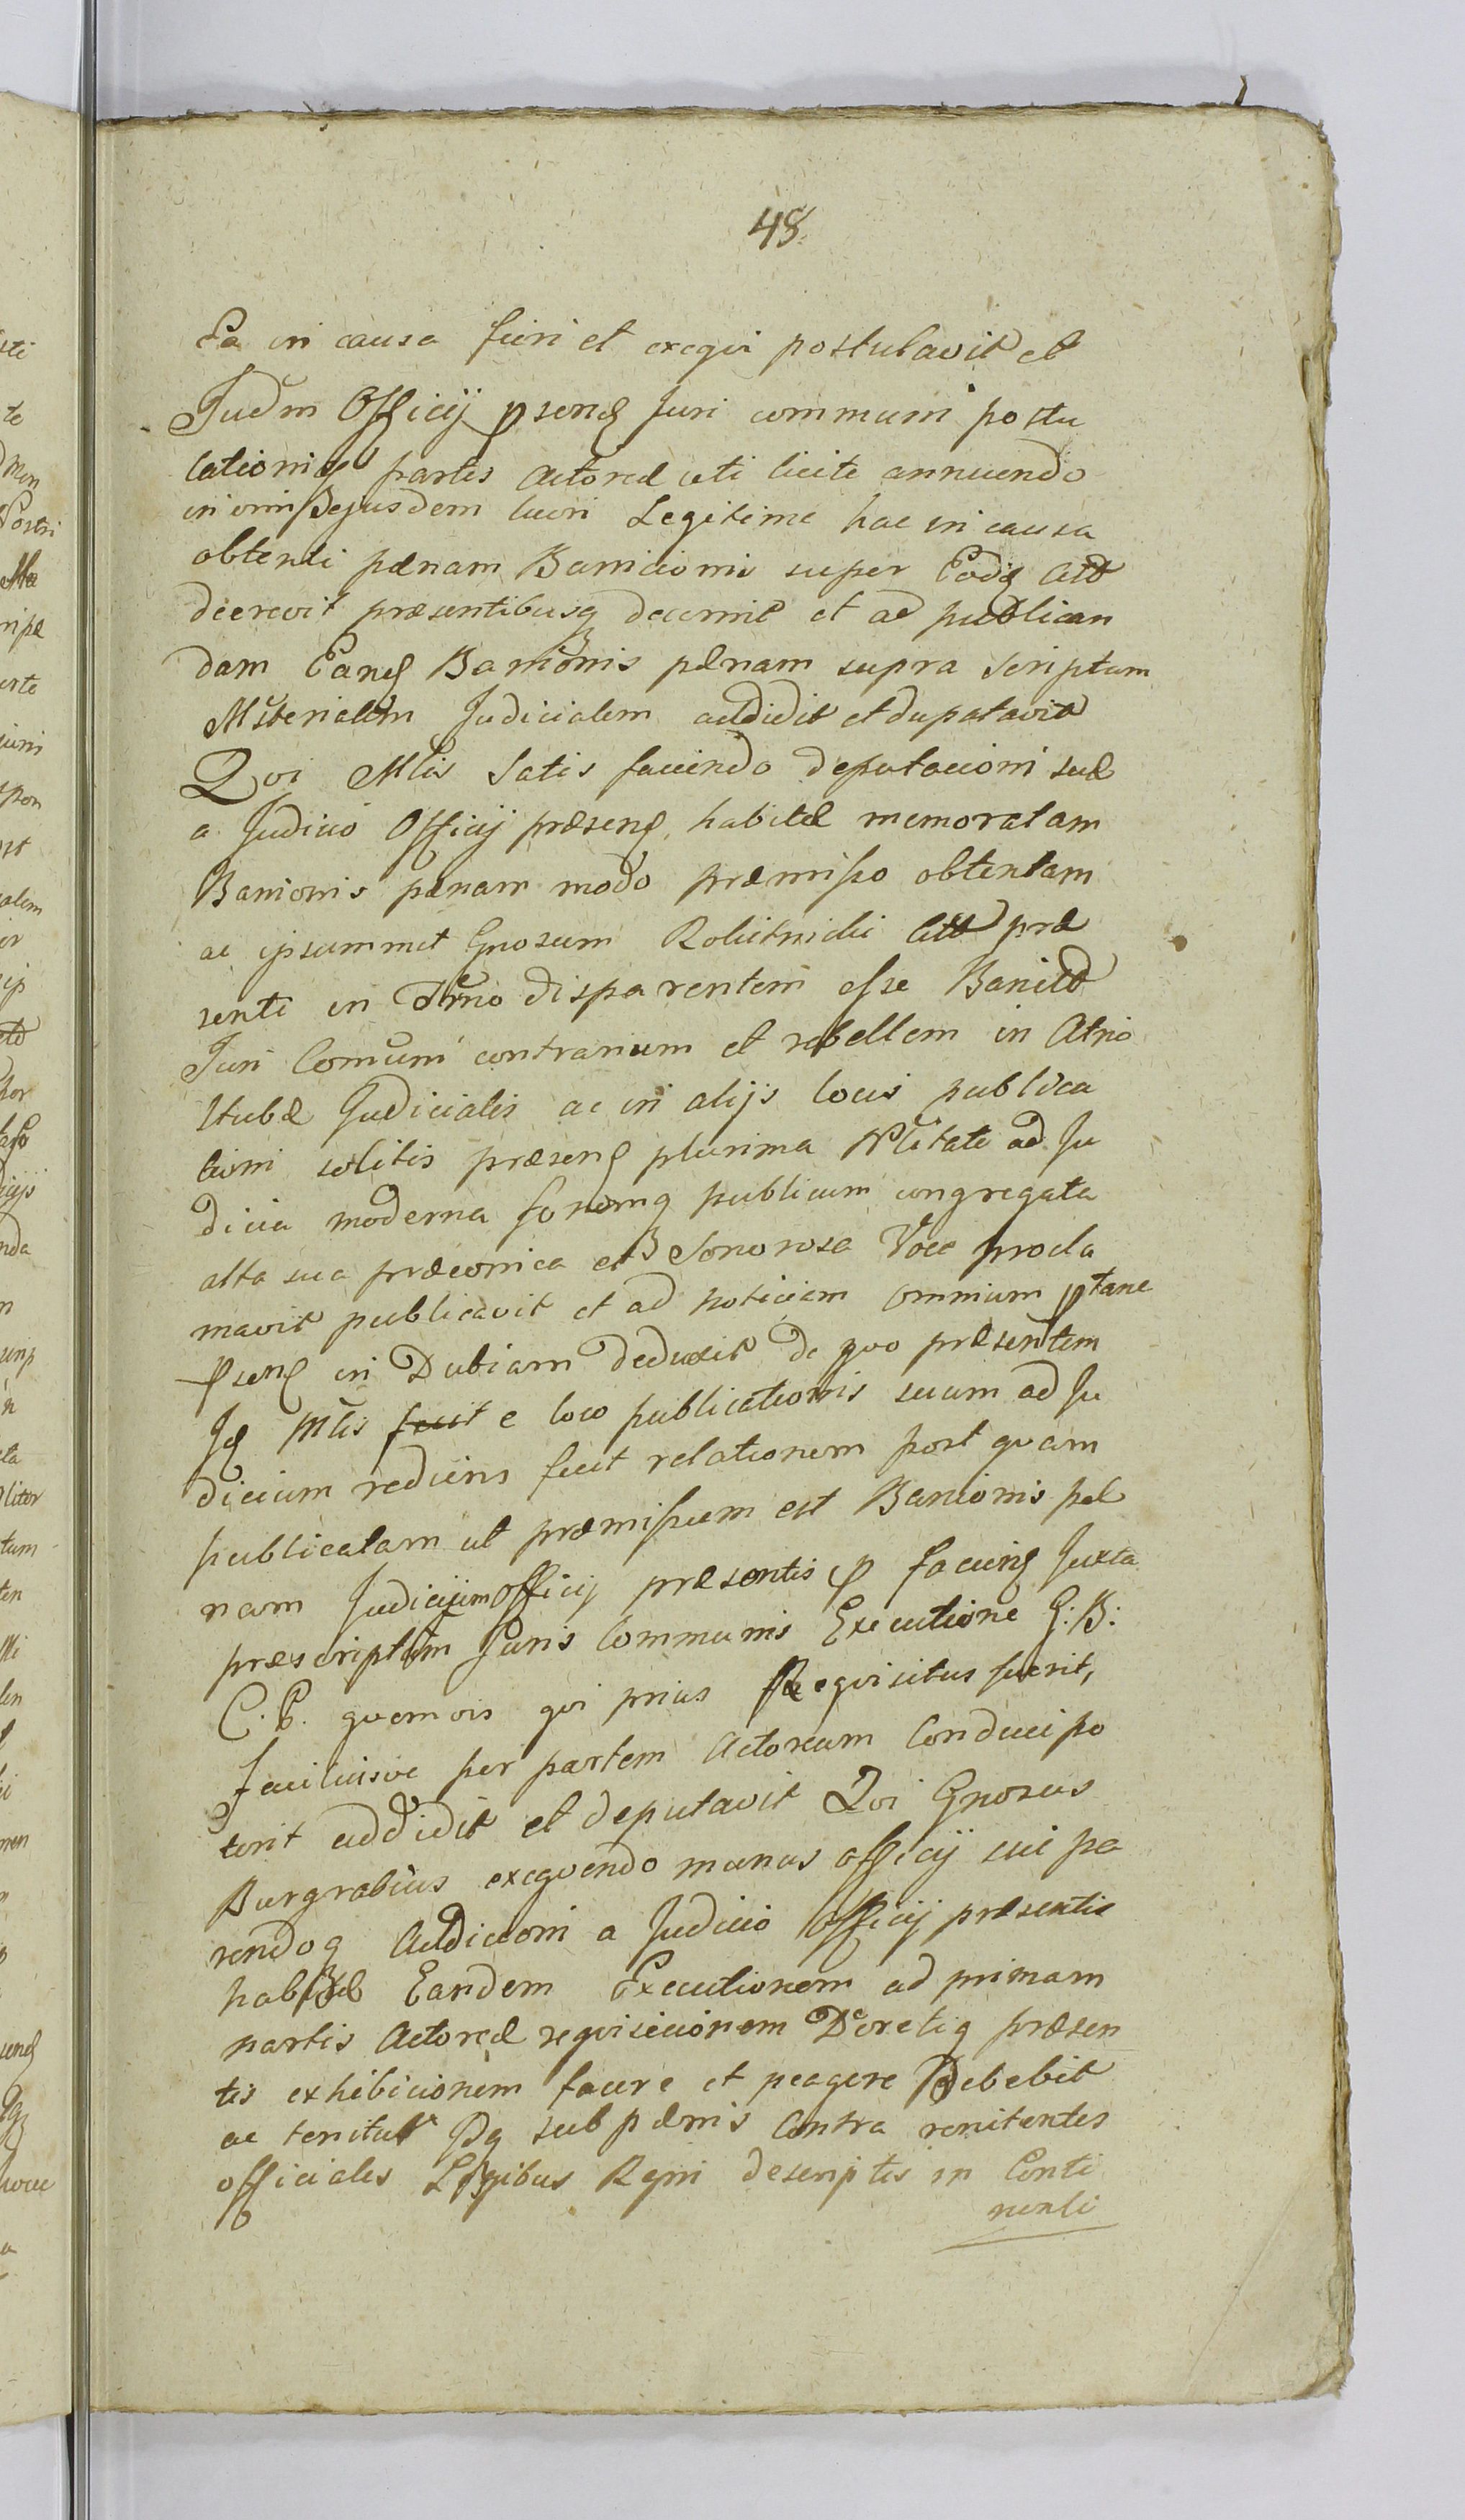 48.
Ea in causa fieri et exeqvi postulavit et
Judm Officij psens Juri communi postu
lationiq partis Actoreæ uti licite annuendo
ejusdem lucri Legitime hac in causa
obtenti pænam Bannicionis super Eodq Citt
decrevit præsentibusq decernit et ad publican
dam Eanq Banionis pænam supra scriptum
Msterialem Judicialem addidit et deputavit
Qvi Mlis Satis faciendo deputacioni suæ
a Judicio Officij præsenq habitæ memoratam
Banionis pænam modo præmisso obtentam
ac ipsummet Gnosum Rolitnicki Citt præ
senti in Trno disparentem esse Banitt
Juri Comuni contrarium et rebellem in Atrio
stubæ Judicialis ac in alijs locis publica
cioni solitis præsenq plurima Nblitate ad Ju
dicia moderna forumq publicum congregata
alta sua præconica et Sonorosa Voce procla
mavit publicavit et ad noticiam omnium ptane
psenq in Dubiam deduxit de qvo præsentem
Jq Mlis fecit e loco publicationis suum ad Ju
dicium rediens fecit relationem post qvam
publicatam ut præmissum est Banionis pæ
nam Judicium Officij præsentis p facienq Juxta
præscriptum Juris Communis Executione G: B:
C. B. qvemvis qvi prius Reqvisitus fuerit,
faciliusve per partem Actoream Conduci po
terit addidit et deputavit Qvi Gnosus
Burgrabius exeqvendo munus officij sui pa
rendoq Addiccioni a Judicio Officij præsentis
habitæ Eandem Executionem ad primam
partis Actoreæ reqvisicionem Decretiq præsen
tis exhibicionem facere et peagere Debebit
ac tenitur Dq sub pænis Contra renitentes
officiales Legibus Regni descriptis in Conti
nenti